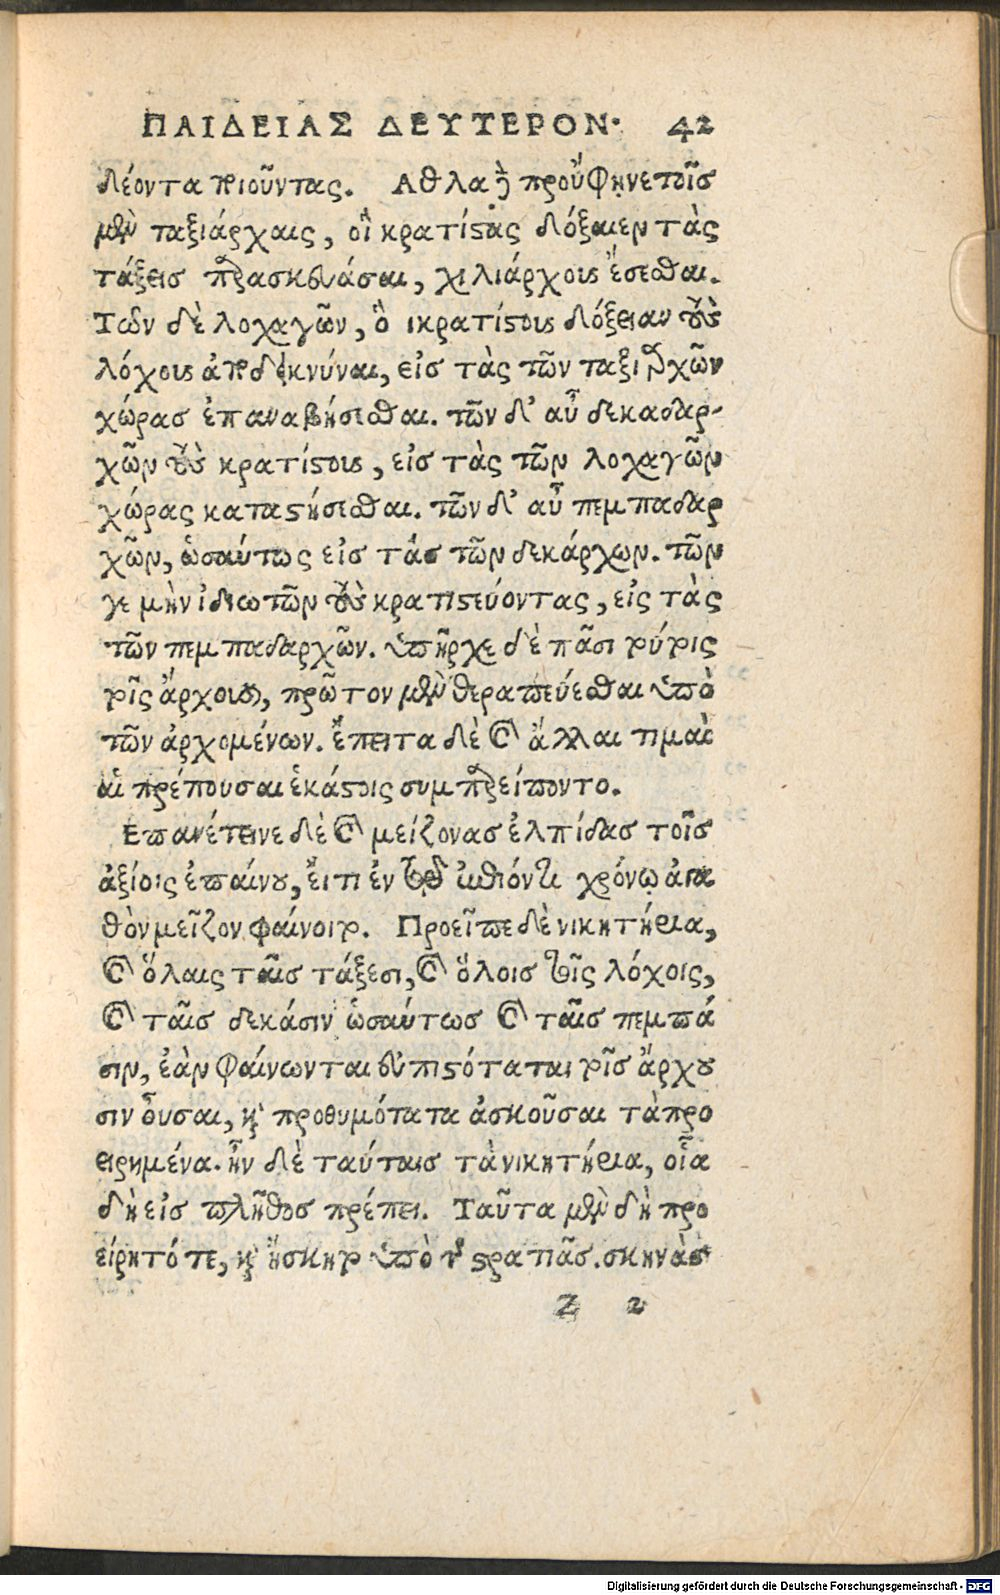 ΠΑΙΔΕΙΑΣ ΔΕΥΤΕΡΟΝ· 42
δέοντα ποιοῦντας. Αθλα δὲ προὔφηνε τοῖς
μὲν ταξιάρχαις, οἳ κρατίστας δόξαιεν τὰς
τάξεις παρασκευάσαι, χιλιάρχους ἔσεσθαι.
Τῶν δὲ λοχαγῶν, ὃι κρατίστους δόξειαν τοὺς
λόχους ἀποδεικνύναι, εἰς τὰς τῶν ταξιαρχῶν
χώρας ἐπαναβήσεσθαι. τῶν δ' αὖ δεκαδαρ-
χῶν τοὺς κρατίστους, εἰς τὰς τῶν λοχαγῶν
χώρας καταστήσεσθαι. τῶν δ' αὖ πεμπαδαρ
χῶν, ὡσαύτως εἰς τὰς τῶν δεκάρχων. τῶν
γε μὴν ἰδιωτῶν τοὺς κρατιστεύοντας, εἰς τὰς
τῶν πεμπαδαρχῶν. ὑπῆρχε δὲ πᾶσι τούτοις
τοῖς ἄρχουσι, πρῶτον μὲν θεραπεύεσθαι ὑπὸ
τῶν ἀρχομένων. ἔπειτα δὲ καὶ ἄλλαι τιμαὶ
αἱ πρέπουσαι ἑκάστοις συμπαρείποντο.
Επανέτεινε δὲ καὶ μείζονας ἐλπίδας τοῖς
ἀξίοις ἐπαίνου, εἴ τι ἐν τῷ ἐπιόντι χρόνῳ ἀγα
θὸν μεῖζον φαίνοιτο. Προεῖπε δὲ νικητήρια,
καὶ ὅλαις ταῖς τάξεσι, καὶ ὅλοις τοῖς λόχοις,
καὶ ταῖς δεκάσιν ὡσαύτως καὶ ταῖς πεμπά
σιν, ἐὰν φαίνωνται εὐπιστόταται τοῖς ἄρχου
σιν οὖσαι, καὶ προθυμότατα ἀσκοῦσαι τὰ προ
ειρημένα. ἦν δὲ ταύταις τὰ νικητήρια, οἷα
δὴ εἰς πλῆθος πρέπει. Ταῦτα μὲν δὴ προ
είρητό τε, καὶ ἤσκητο ὑπὸ τῆς στρατιᾶς. σκηνὰς
Z 2
Digitalisierung gefördert durch die Deutsche Forschungsgemeinschaft - DFG